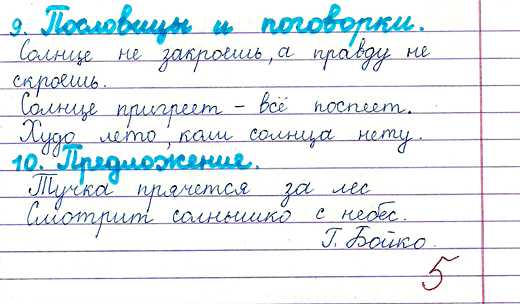 9. Пословицы и поговорки.
Солнце не закроешь, а правду не
скроешь.
Солнце пригреет – всё поспеет.
Худо лето, коли солнца нету.
10. Предложение.
Тучка прячется за лес
Смотрит солнышко с небес.
Г. Бойко.
5